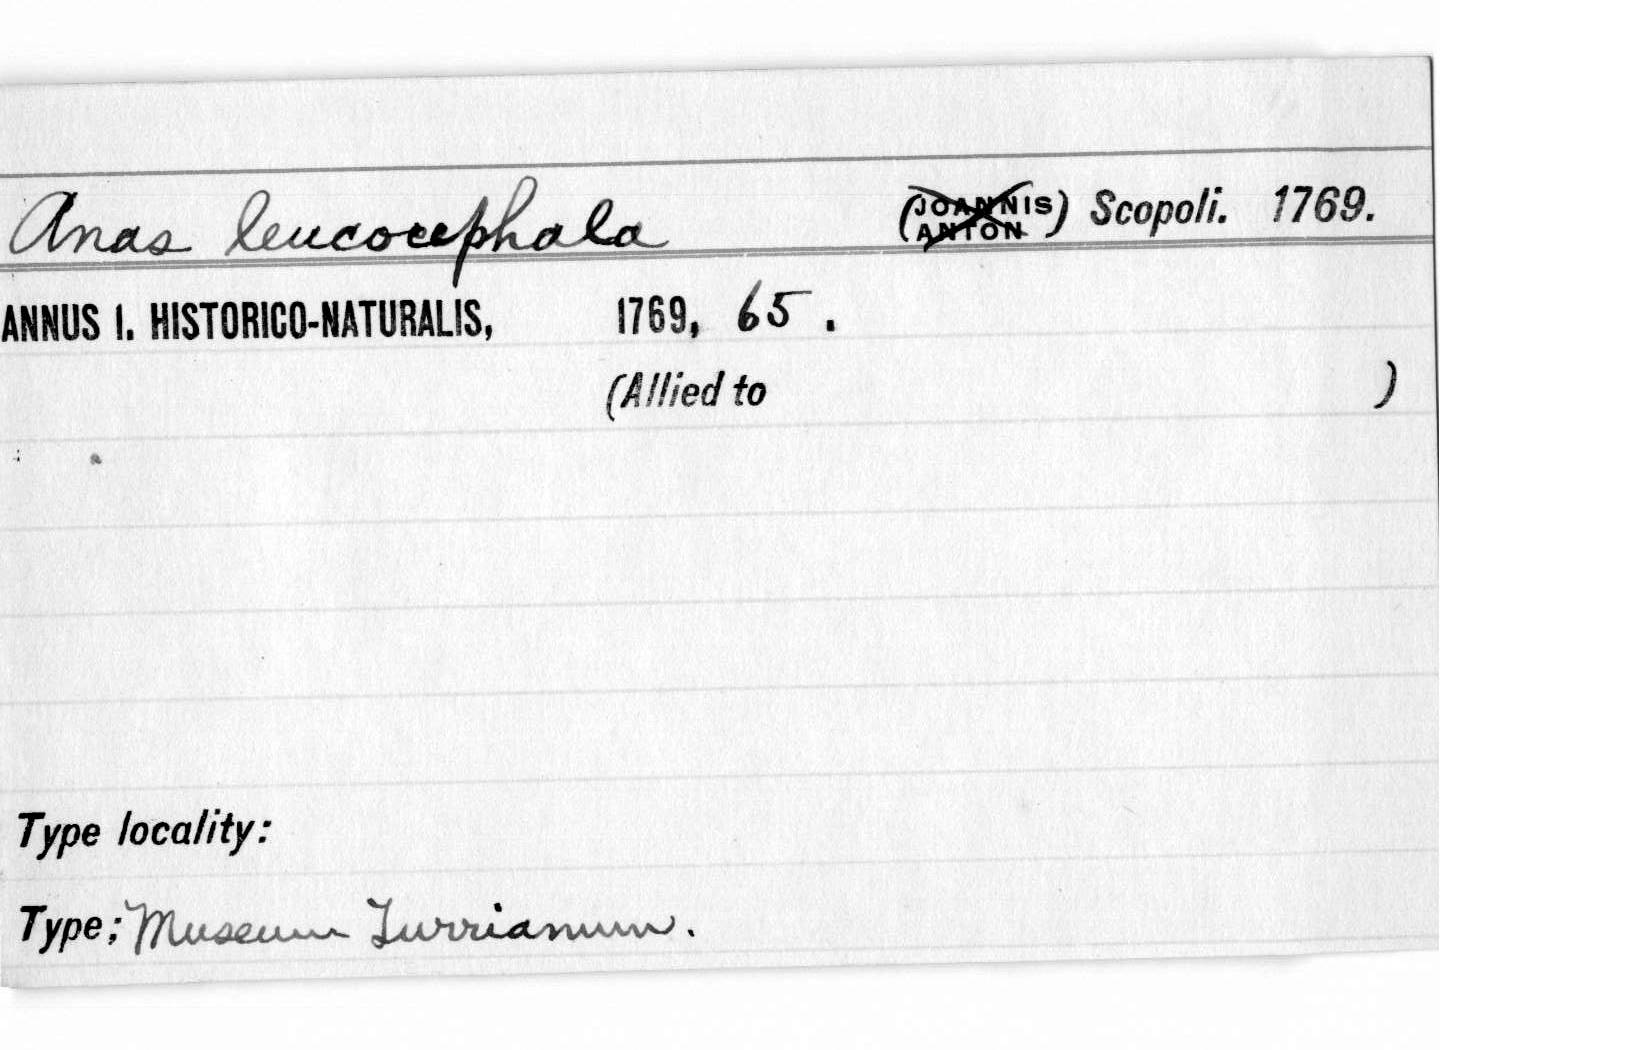 Anas leucocephala (JOANNIS ANTON) Scopoli. 1769.
ANNUS I. HISTORICO-NATURALIS, 1769, 65.
(Allied to )
Type locality:
Type; Museum Turrianum.